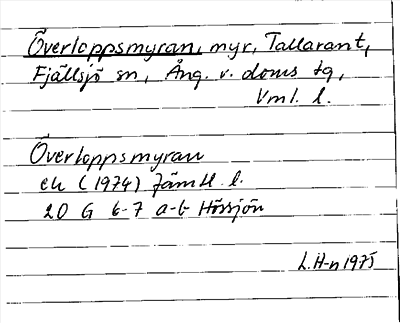 Överloppsmyran, myr, Tallarant,
Fjällsjö sn, Ång. v. doms tg,
Vml. l.
Överloppsmyran
ek (1974) Jämtl. l.
20 G 6-7 a-b Hössjön
L.H-n 1975